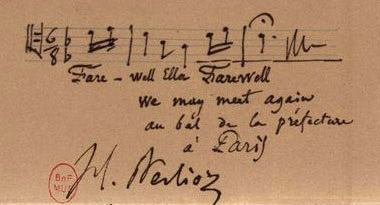 6
8
Fare - well Ella Farewell
We may meet again
au bal de la préfecture
à Paris
H. Berlioz
BnF
MUS